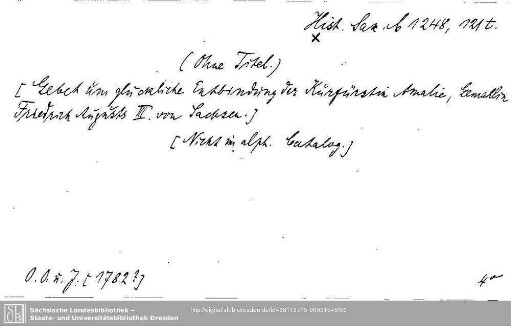 Hist. Sax. A 1248, 121t.
x
(Ohne Titel.)
[Gebet um glückliche Entbindung der Kurfürstin Amalie, Gemahlin
Friedrich Augusts III. von Sachsen.]
[Nicht im alph. Catalog.]
O. O. u. J. [1782?]
4°
SLUB
Sächsische Landesbibliothek –
Staats- und Universitätsbibliothek Dresden